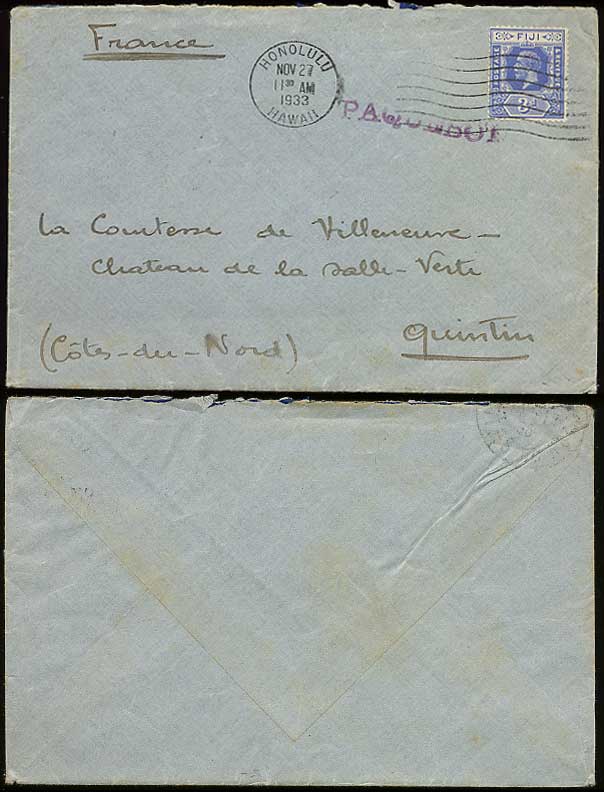 France
HONOLULU
NOV 27
11 30 AM
1933
HAWAII
FIJI
POSTAGE
3d
PAQUEBOT
La Comtesse de Villeneuve-
Chateau de la Salle-Verte
Quintin
(Côtes-du-Nord)